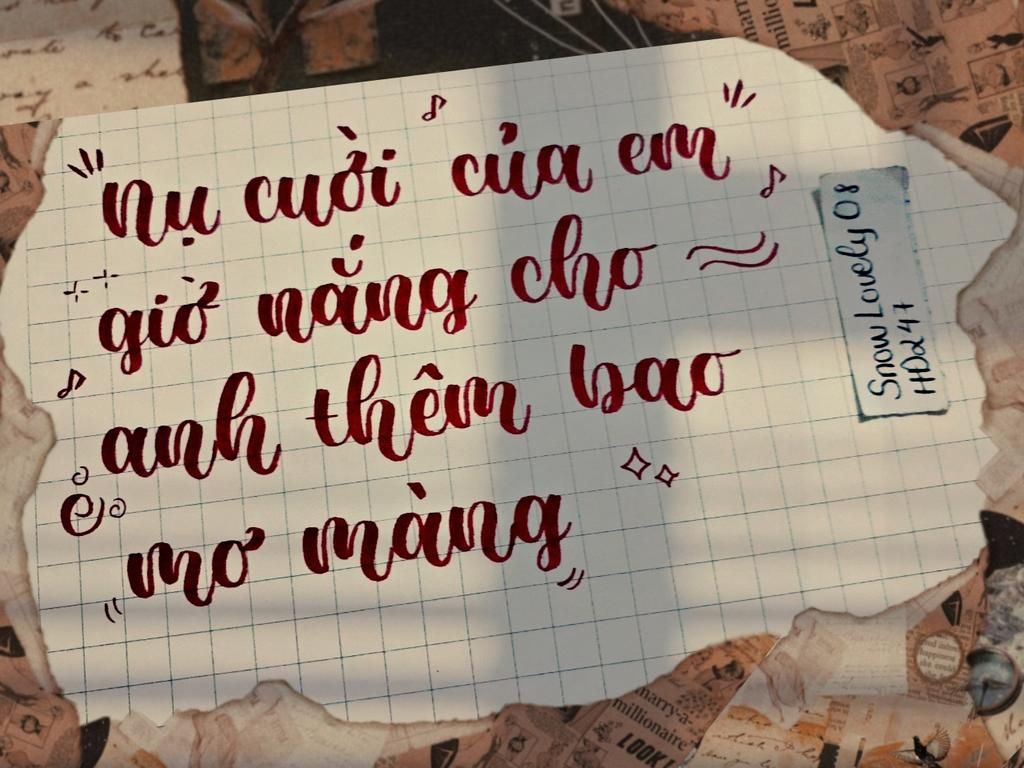 Nụ cười của em
giờ nắng cho
anh thêm bao
mơ màng
SnowLovely 08
HDα47
million
marry-a-
millionaire
LOOK!